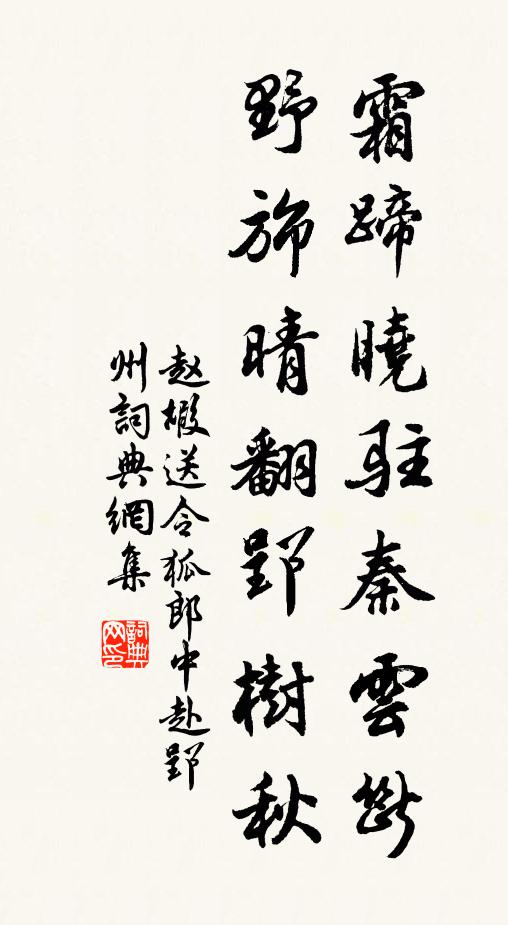 霜蹄曉駐秦雲斷
野旆晴翻郢樹秋
赵嘏送令狐郎中赴郢
州詞典網集
詞典网印